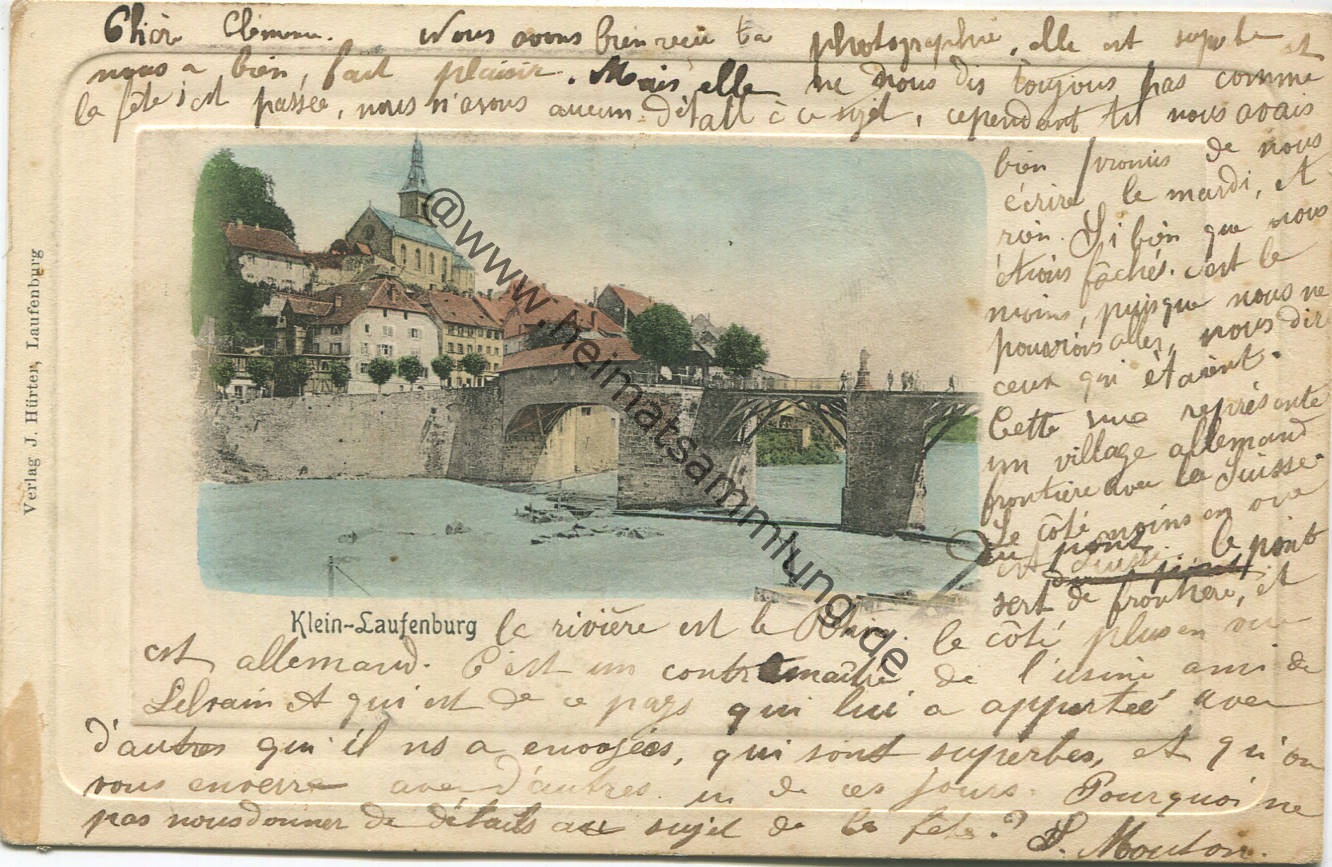 Chère Clémence. Nous avons bien reçu ta photographie, elle est superbe et
nous a bien, fait plaisir. Mais, elle ne nous dis toujours pas comme
la fête s'est passée, nous n'avons aucun détail à ce sujet, cependant tu nous avais
bien promis de nous
écrire le mardi, et
rien. Si bien que nous
étions fâchés. c'est le
moins, puisque nous ne
pouvions aller, nous dire
ceux qui étaient.
Cette vue représente
un village allemand
frontière avec la Suisse.
Le côté moins en vue
est Suisse. le pont
sert de frontière, et
Klein-Laufenburg
la rivière est le Rhin. le côté plus en vue
est allemand. C'est un contremaître de l'usine ami de
Lebrain et qui est de ce pays qui lui a apporteé avec
d'autres qu'il ns a envoyées, qui sont superbes, et qu'on
vous enverra avec d'autres. un de ces jours. Pourquoi ne
pas nous donner de détails au sujet de la fête? S. Mouton.
Verlag J. Hürter, Laufenburg
@www.heimatsammlung.de